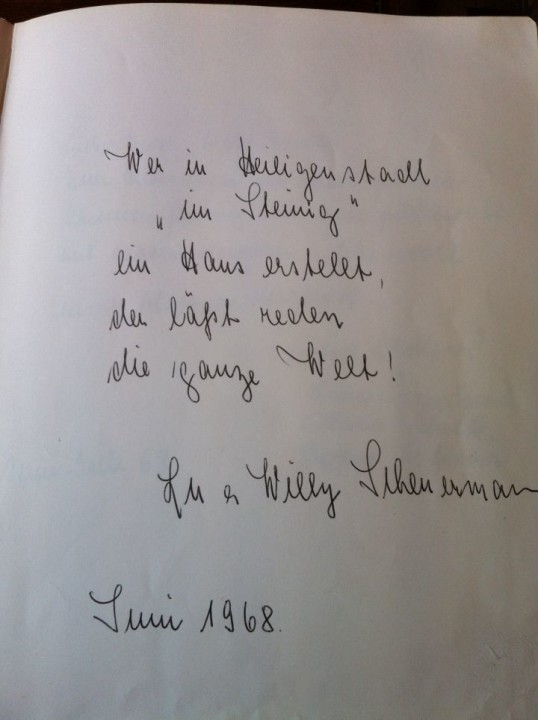 Wer in Heiligenstadt
„im Steinig"
ein Haus erstellt,
der läßt reden
die ganze Welt!
Lu & Willy Scheuerman
Juni 1968.